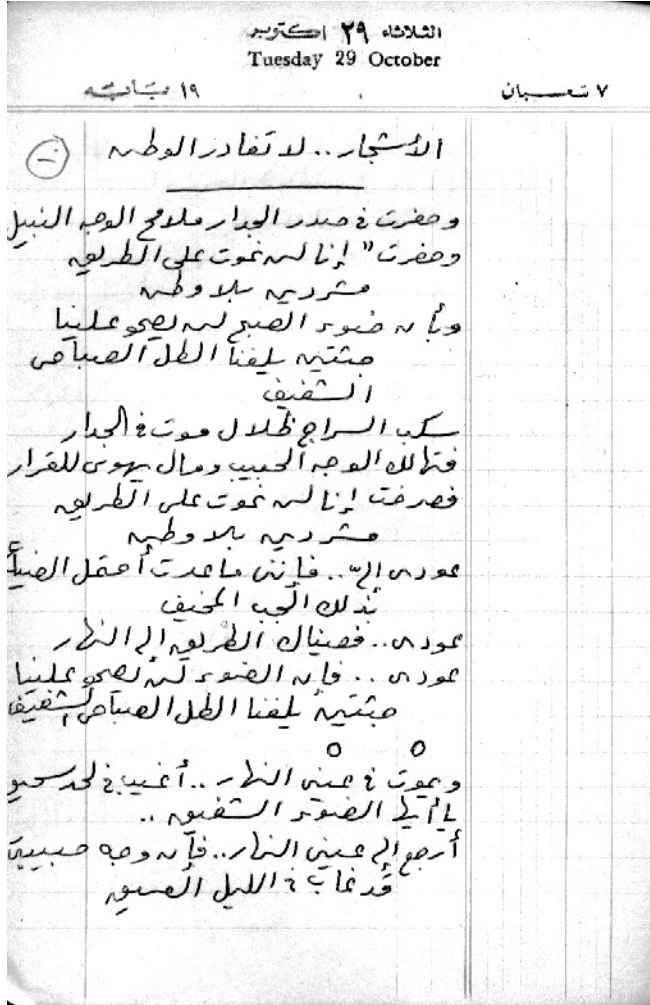 الثلاثاء ٢٩ اكتوبر
Tuesday 29 October
٧ شعبان
١٩ بابه
الأشجار .. لا تغادر الوطن
وحفرت في صدر الجدار ملامح الوجه النبيل
وحفرت " إنا لن نموت على الطريق
مشردين بلا وطن
وبأن ضوء الصبح لن يصحو علينا
جثتين يلفنا الطل الصباحى
الشفيف
سكب السراج ظلال موت في الجدار
فتهالك الوجه الحبيب ومال يهوى للقرار
فصرخت إنا لن نموت على الطريق
مشردين بلا وطن
عودى إلىّ .. فإننى ما عدت أحتمل الضياع
بذلك الجب المخيف
عودى .. فهناك الطريق إلى النهار
عودى .. فإن الضوء لن يصحو علينا
جثتين يلفنا الطل الصباحى الشفيف
ويموت في عينى النهار .. أغيب في لحد سحيق
يا أيها الضوء الشفيق ..
أرجع إلى عينى النهار .. فإن وجه حبيبتى
قد غاب في الليل العميق